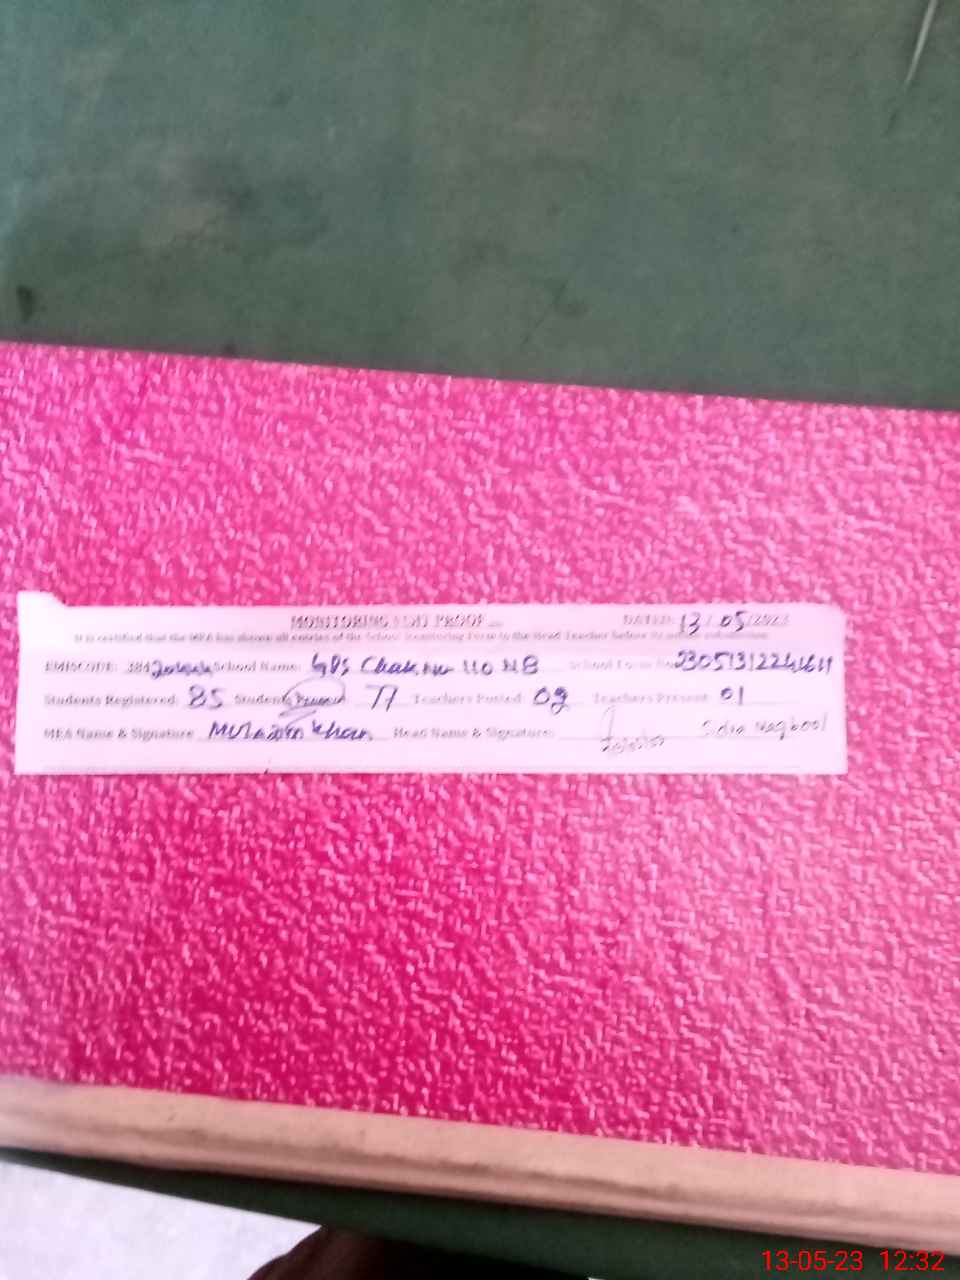 MONITORING VISIT PROOF DATED: 13/05/2023
It is certified that the MEA has shown all entries of the School Monitoring Form to the Head Teacher before its submission
EMISCODE: 384 School Name: GPS Chak No 110 NB School Form No
Students Registered: 85 Students Present 77 Teachers Posted: 02 Teachers Present: 01
MEA Name & Signature Khan Head Name & Signature:
13-05-23 12:32